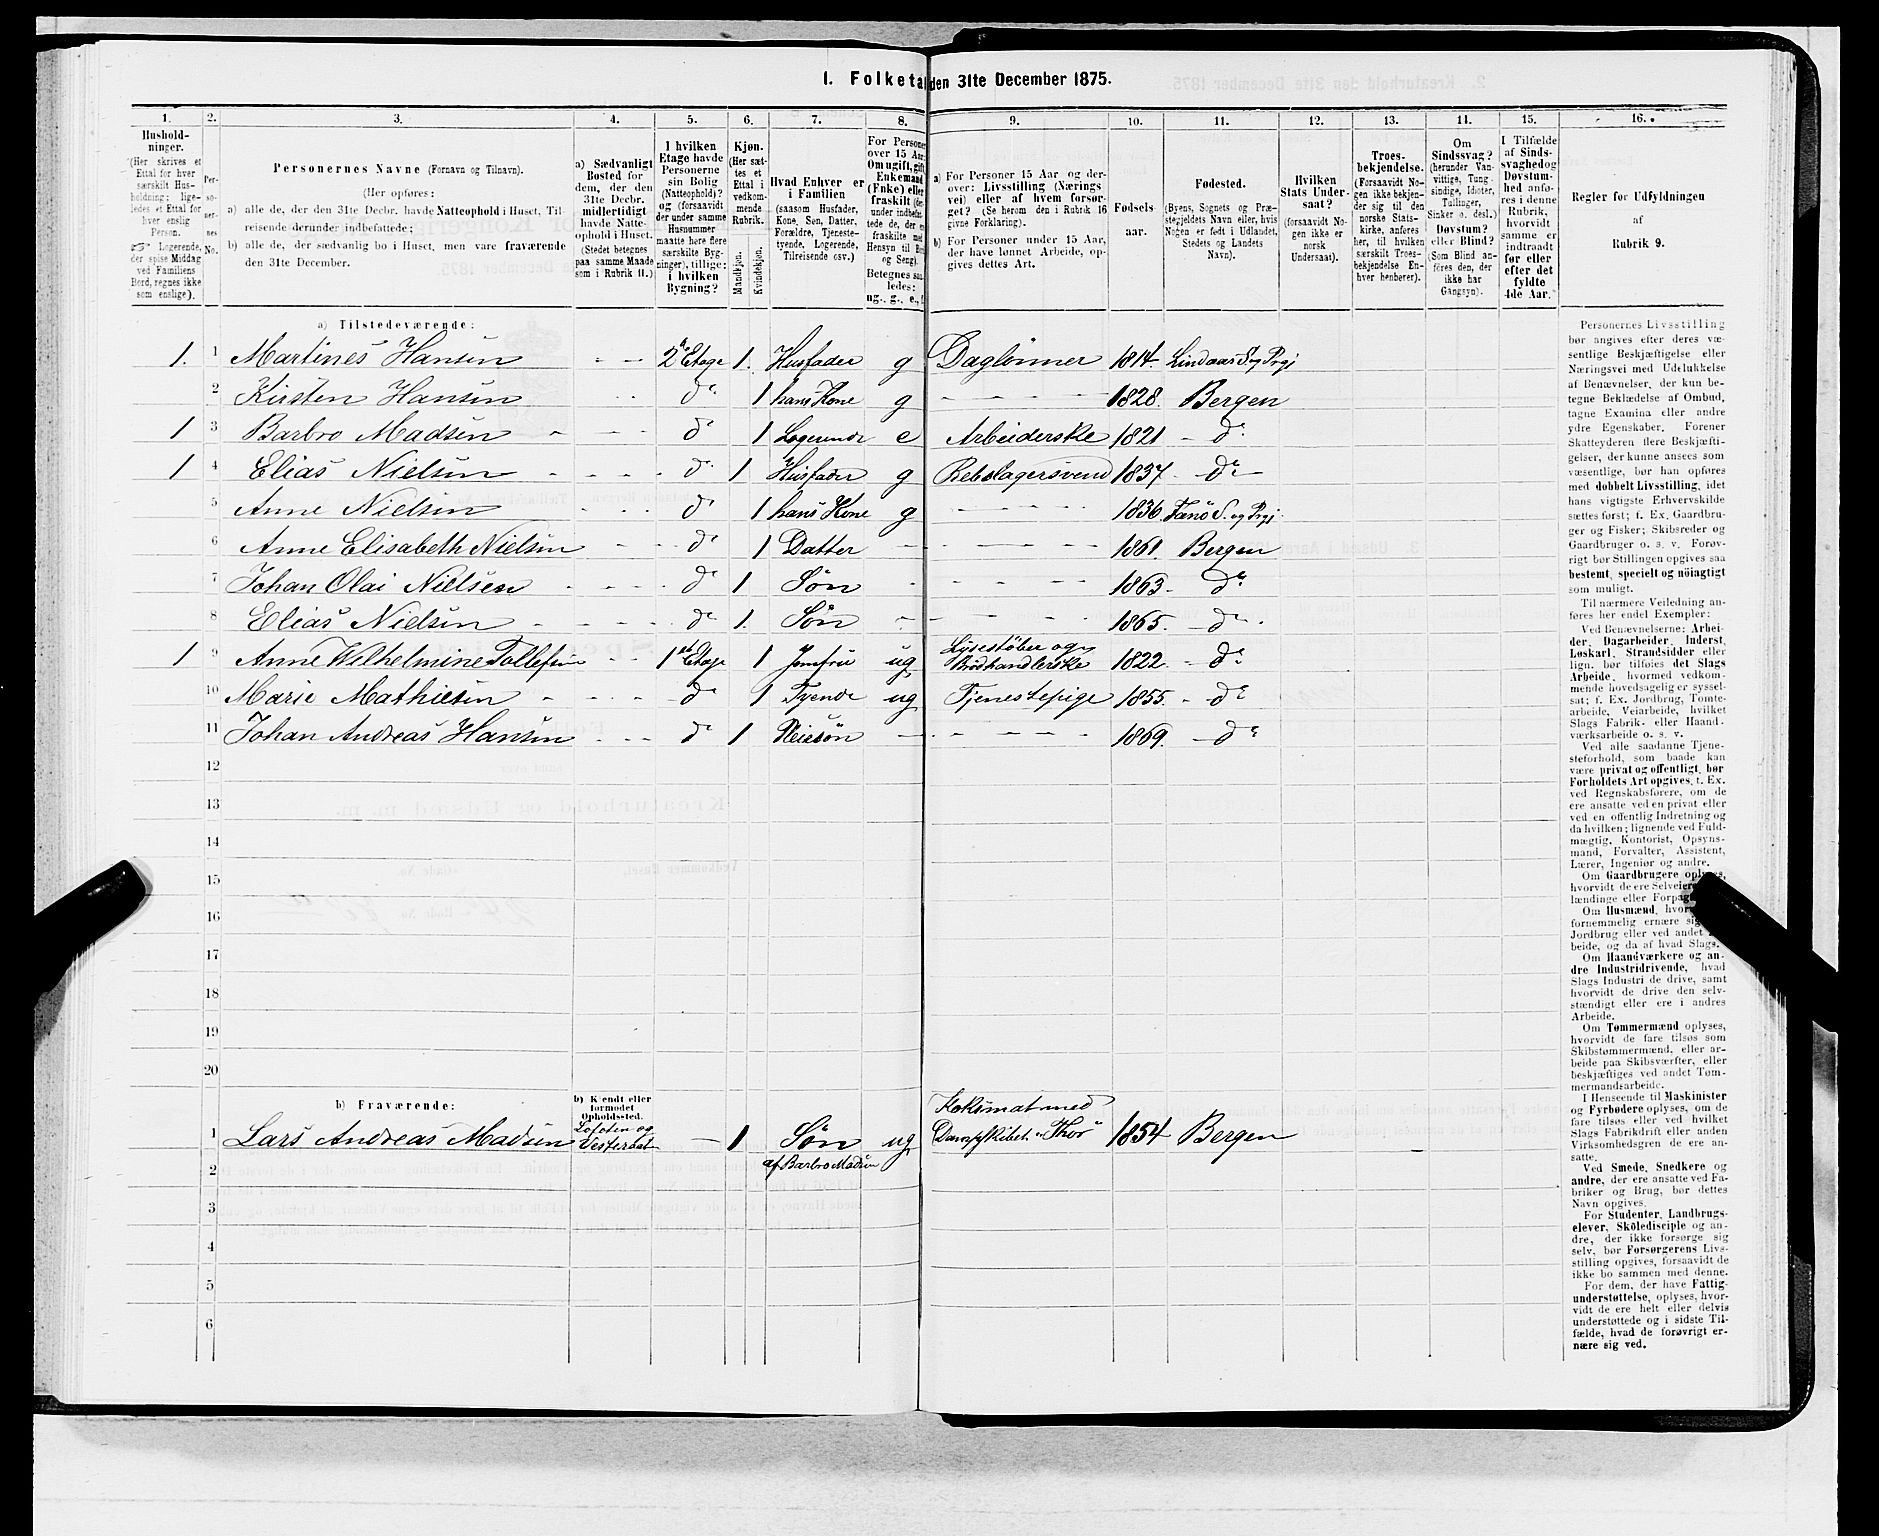 1. Folketal den 31te December 1875.
1. 2. 3. 4. 5. 6. 7. 8. 9. 10. 11. 12. 13. 14. 15. 16.
Hushold-
ninger.
(Her skrives et
Ettal for hver
særskilt Hus-
holdning; lige-
ledes et Ettal for
hver enslig
Person.
Logerende,
der spise Middag
ved Familiens
Bord, regnes ikke
som enslige).
Per-
so-
ner-
nes
No.
Personernes Navne (Fornavn og Tilnavn).
(Her opføres:
a) alle de, der den 31te Decbr. havde Natteophold i Huset, Til-
reisende derunder indbefattede;
b) alle de, der sædvanlig bo i Huset, men vare fraværende
den 31te December.
a) Sædvanligt
Bosted for
dem, der den
31te Decbr.
midlertidigt
havde Natte-
ophold i Huset.
(Stedet betegnes
paa samme Maade
som i Rubrik 11.)
I hvilken
Etage havde
Personerne
sin Bolig
(Natteophold)?
og (forsaavidt
der under samme
Husnummer
maatte høre flere
særskilte Byg-
ninger), tillige:
i hvilken
Bygning?
Kjøn.
(Her sæt-
tes et
Ettal i
vedkom-
mende
Rubrik.)
Mandkjøn.
Kvindekjøn.
Hvad Enhver er
i Familien
(saasom Husfader,
Kone, Søn, Datter,
Forældre, Tjeneste-
tyende, Logerende,
Tilreisende osv.)
For Personer
over 15 Aar:
Om ugift, gift,
Enkemand
(Enke) eller
fraskilt
Betegnes saa-
ledes:
ug., g., e., f.
a) For Personer 15 Aar og der-
over: Livsstilling (Nærings-
vei) eller af hvem forsør-
get? (Se herom den i Rubrik 16
givne Forklaring).
b) For Personer under 15 Aar,
der have lønnet Arbeide, op-
gives dettes Art.
Fødsels-
aar.
Fødested.
(Byens, Sognets og Præ-
stegjeldets Navn eller, hvis
Nogen er født i Udlandet,
Stedets og Landets
Navn).
Hvilken
Stats Under-
saat?
(forsaavidt No-
gen ikke er
norsk
Undersaat).
Troes-
bekjendelse.
(Forsaavidt No-
gen ikke bekjen-
der sig til den
norske Stats-
kirke, anføres
her, til hvilken
særskilt Troes-
bekjendelse En-
hver henhører).
Om
Sindssvag?
(herunder Van-
vittige, Tung-
sindige, Idioter,
Tullinger,
Sinker o. desl.)
Døvstum?
eller Blind?
(Som Blind an-
føres den, der
ikke har
Gangsyn).
I Tilfælde
af Sinds-
svaghed og
Døvstum-
hed anfø-
res i denne
Rubrik,
hvorvidt
samme er
indtraadt
før eller
efter det
fyldte
4de Aar.
Regler for Udfyldningen
af
Rubrik 9.
a) Tilstedeværende:
1. 1 Martines Hansen 2 Etage 1. Husfader g Daglønner 1814. Lindaas S. og Prgj
2 Kirsten Hansen do 1 hans Kone g 1828. Bergen
1 3 Barbro Madsen do 1 Logerende e Arbeiderske 1821 do
1 4 Elias Nielsen do 1 Husfader g Rebslagersvend 1837 do
5 Anne Nielsen do 1 hans Kone g 1836. Fanø S. og Prgj.
6 Anne Elisabeth Nielsen do 1 Datter 1861. Bergen
7 Johan Olai Nielsen do 1 Søn 1863 do
8 Elias Nielsen do 1. Søn 1865. do
1 9 Anne Wilhelmine Tollefsen 1 Etage 1 Jomfru ug Lysestøber og Brødhandlerske 1822. do
10 Marie Mathiesen do 1 Tyende ug Tjenestepige 1855. do
11 Johan Andreas Hansen do 1 Pleiesøn 1869. do
12
13
14
15
16
17
18
19
20
b) Fraværende:
b) Kjendt eller
formodet
Opholds-sted.
1 Lars Andreas Madsen Lofoten og Vesteraal 1 Søn af Barbro Madsen ug Koksmat med Dampskibet "Thor" 1854 Bergen
2
3
4
5
6
Personernes Livsstilling
bør angives efter deres væ-
sentlige Beskjæftigelse eller
Næringsvei med Udelukkelse
af Benævnelser, der kun be-
tegne Beklædelse af Ombud,
tagne Examina eller andre
ydre Egenskaber. Forener
Skatteyderen flere Beskjæfti-
gelser, der kunne ansees som
væsentlige, bør han opføres
med dobbelt Livsstilling, idet
hans vigtigste Erhvervskilde
sættes først; f. Ex. Gaardbru-
ger og Fisker; Skibsreder og
Gaardbruger o. s. v. Forøv-
rigt bør Stillingen opgives saa
bestemt, specielt og nöiagtigt
som muligt.
Til nærmere Veiledning an-
føres her endel Exempler:
Ved Benævnelserne: Arbei-
der, Dagarbeider, Inderst,
Løskarl, Strandsidder eller
lign. bør tilføies det Slags
Arbeide, hvormed vedkom-
mende hovedsagelig er syssel-
sat; f. Ex. Jordbrug, Tomte-
arbeide, Veiarbeide, hvilket
Slags Fabrik- eller Haand-
værksarbeide o. s. v.
Ved alle saadanne Tjene-
steforhold, som baade kan
være privat og offentligt, bør
Forholdets Art opgives, t. Ex.
ved Regnskabsførere, om de
ere ansatte ved en privat eller
ved en offentlig Indretning og
da hvilken; lignende ved Fuld-
mægtig, Kontorist, Opsyns-
mand, Forvalter, Assistent,
Lærer, Ingeniør og andre.
Om Gaardbrugere oplyses,
hvorvidt de ere Selveiere,
lændinge eller
Om Husmænd,
fornemmelig ernære sig
Jordbrug eller ved andet
beide, og da af hvad Slags.
Om Haandværkere og an-
dre Industridrivende, hvad
Slags Industri de drive, samt
hvorvidt de drive den selv-
stændigt eller ere i andres
Arbeide.
Om Tømmermænd oplyses,
hvorvidt de fare tilsøs som
Skibstømmermænd, eller ar-
beide paa Skibsværfter, eller
beskjæftiges ved andet Tøm-
mermandsarbeide.
I Henseende til Maskinister
og Fyrbødere oplyses, om de
fare tilsøs eller ved hvilket
Slags Fabrikdrift eller anden
Virksomhedsgren de ere an-
satte.
Ved Smede, Snedkere og
andre, der ere ansatte ved Fa-
briker og Brug, bør dettes
Navn opgives.
For Studenter, Landbrugs-
elever, Skoledisciple og an-
dre, der ikke forsørge sig
selv, bør Forsørgerens Livs-
stilling opgives, forsaavidt de
ikke bo sammen med denne.
For dem, der have Fattig-
understøttelse, oplyses, hvor-
vidt de ere helt eller delvis
understøttede og i sidste Til-
fælde, hvad de forøvrigt er-
nære sig ved.